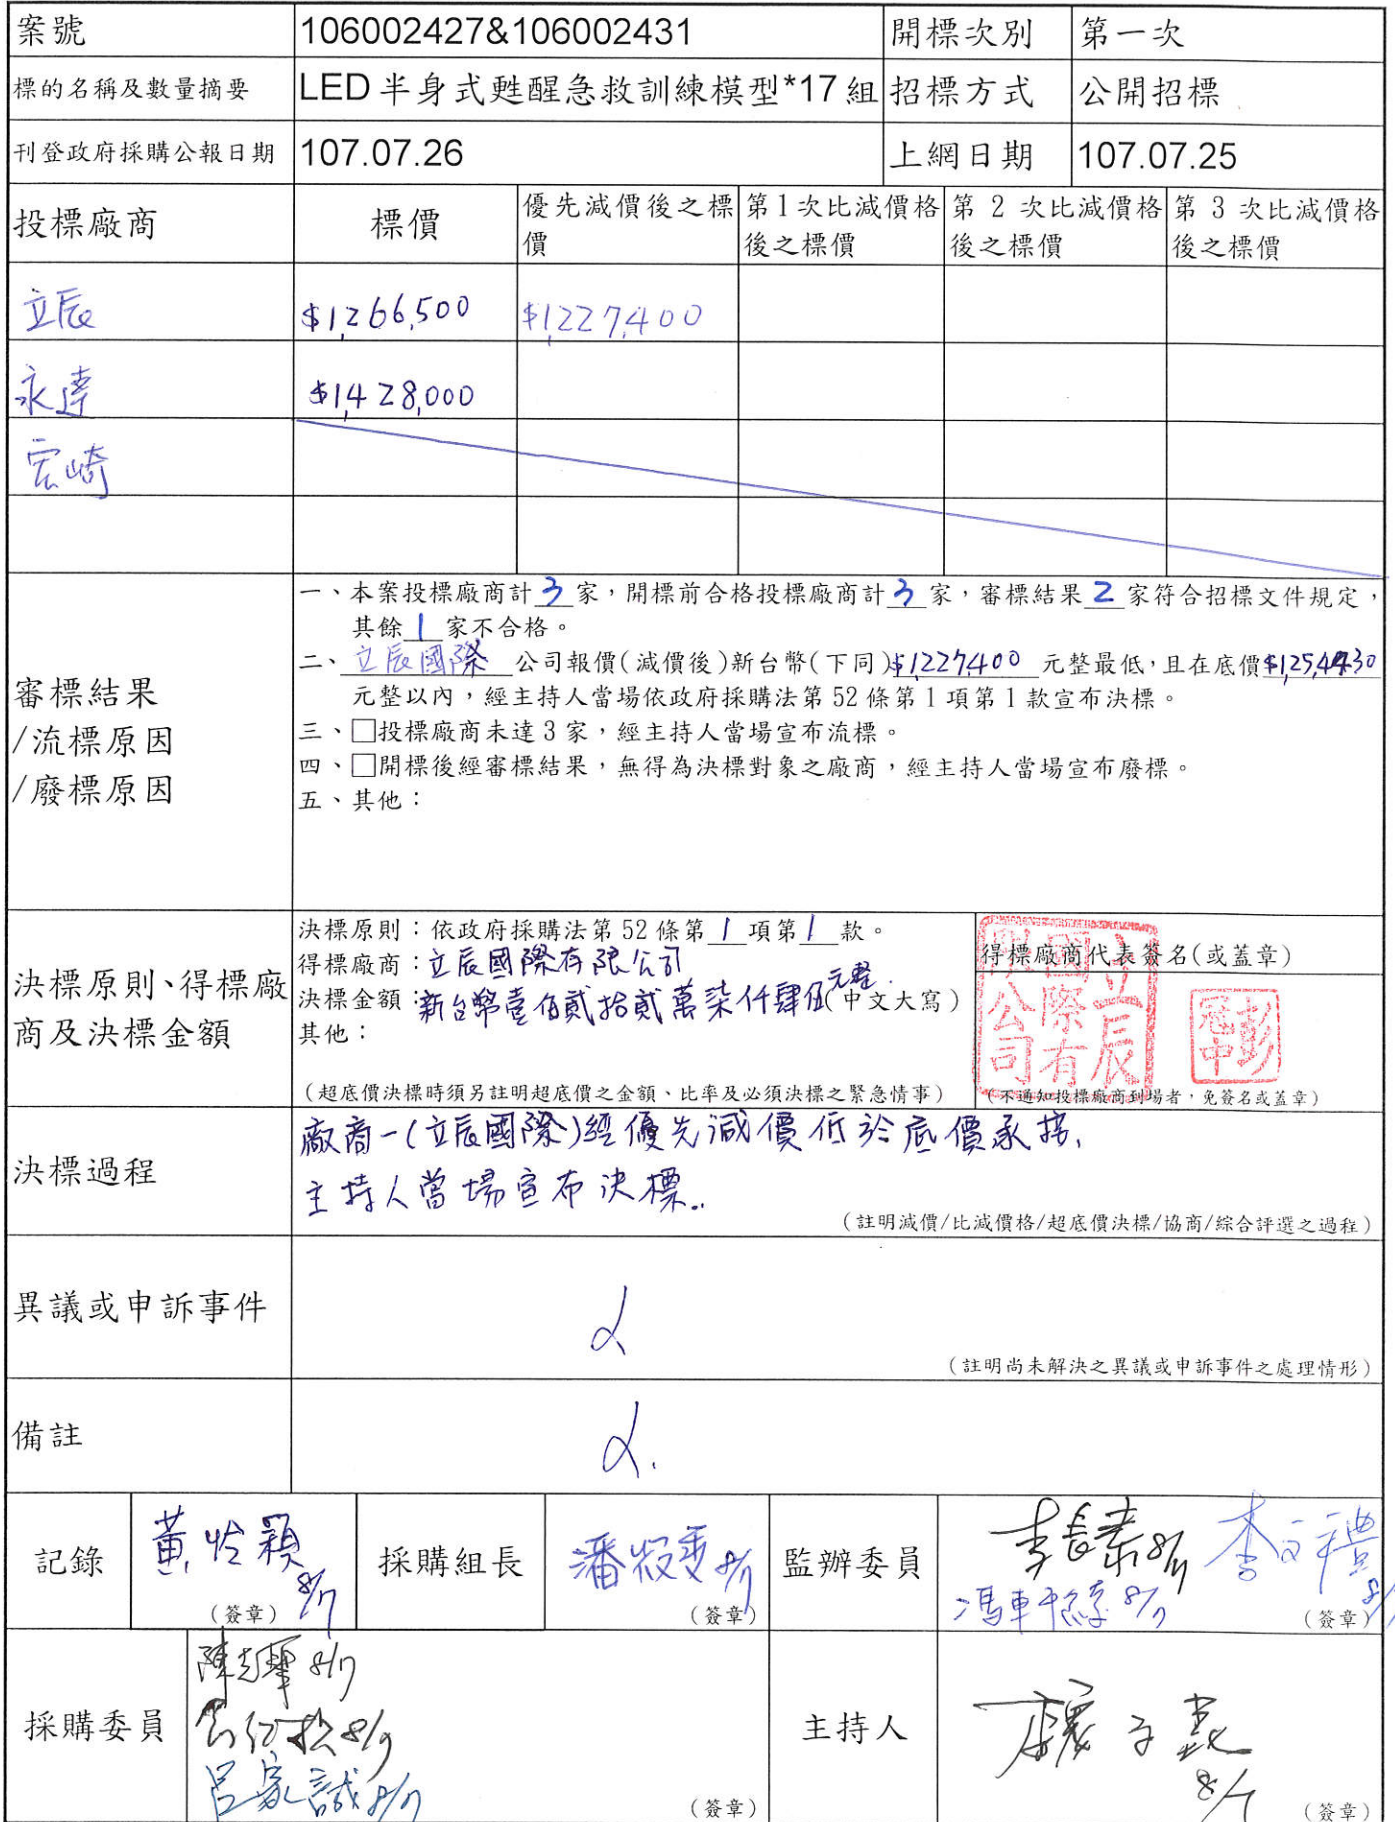 案號 106002427&106002431 開標次別 第一次
標的名稱及數量摘要 LED半身式甦醒急救訓練模型*17組 招標方式 公開招標
刊登政府採購公報日期 107.07.26 上網日期 107.07.25
投標廠商 標價 優先減價後之標價 第1次比減價格後之標價 第2次比減價格後之標價 第3次比減價格後之標價
立辰 $1,266,500 $1,227,400
永達 $1,428,000
宏崎
審標結果
/流標原因
/廢標原因
一、本案投標廠商計3家，開標前合格投標廠商計3家，審標結果2家符合招標文件規定，
其餘1家不合格。
二、立辰國際公司報價(減價後)新台幣(下同)$1,227,400元整最低，且在底價
元整以內，經主持人當場依政府採購法第52條第1項第1款宣布決標。
三、□投標廠商未達3家，經主持人當場宣布流標。
四、□開標後經審標結果，無得為決標對象之廠商，經主持人當場宣布廢標。
五、其他：
決標原則、得標廠
商及決標金額
決標原則：依政府採購法第52條第1項第1款。
得標廠商：立辰國際有限公司
決標金額：新台幣壹佰貳拾貳萬柒仟肆佰元整(中文大寫)
其他：
(超底價決標時須另註明超底價之金額、比率及必須決標之緊急情事)
得標廠商代表簽名(或蓋章)
立辰國際有限公司
彭冠中
(不通知投標廠商到場者，免簽名或蓋章)
決標過程
廠商一(立辰國際)經優先減價低於底價承接,
主持人當場宣布決標..
(註明減價/比減價格/超底價決標/協商/綜合評選之過程)
異議或申訴事件
(註明尚未解決之異議或申訴事件之處理情形)
備註
記錄 黃怜穎 8/7 (簽章)
採購組長 8/7 (簽章)
監辦委員 8/7 李文禮 8/7 8/7 (簽章)
採購委員 陳志暉 8/7
8/7
呂家誠 8/7 (簽章)
主持人 8/7 (簽章)